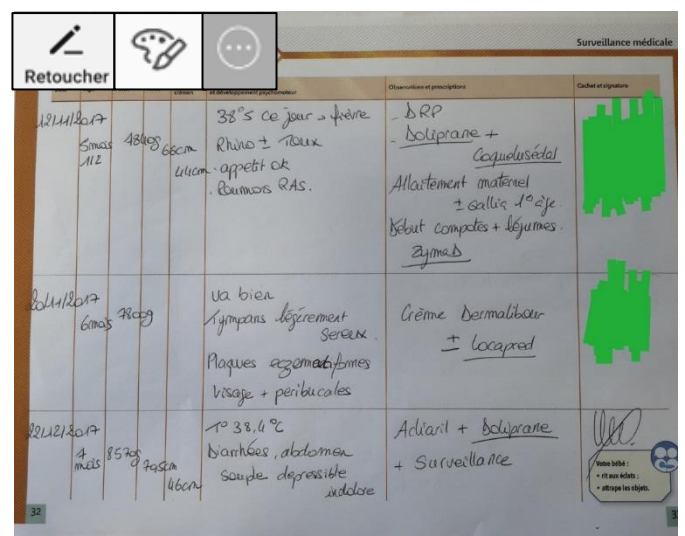 Retoucher
Surveillance médicale
crânien
et développement psychomoteur
Observations et prescriptions
Cachet et signature
12/11/2017
5mois
1/2
66cm
44cm
38°5 ce jour → fièvre
Rhino ± Toux
- appetit ok
. Poumons RAS.
- DRP
- Doliprane +
Coquelusédal
Allaitement maternel
± Gallia 1° âge.
Début compotes + légumes.
ZymaD
6mois 7800g
va bien
Tympans légèrement
sereux.
Plaques eczematiformes
Visage + peribucales
Crème Dermalibour
± Locapred
22/12/2017
7
mois
8570g
46cm
T° 38,4°C
Diarrhées, abdomen
souple depressible
indolore
Adiaril + Doliprane
+ Surveillance
Votre bébé :
• rit aux éclats ;
• attrape les objets.
32